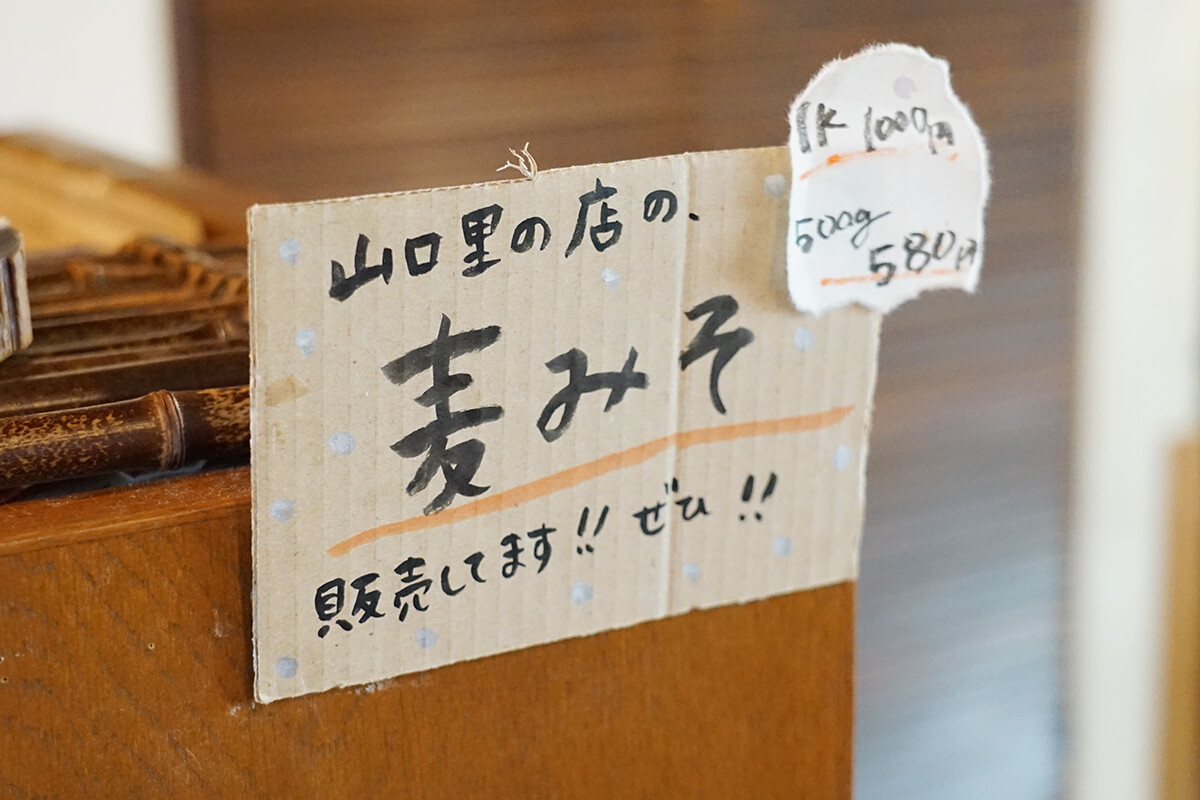 山口里の店の、
麦みそ
販売してます!! ぜひ!!
1K 1000円
500g
580円